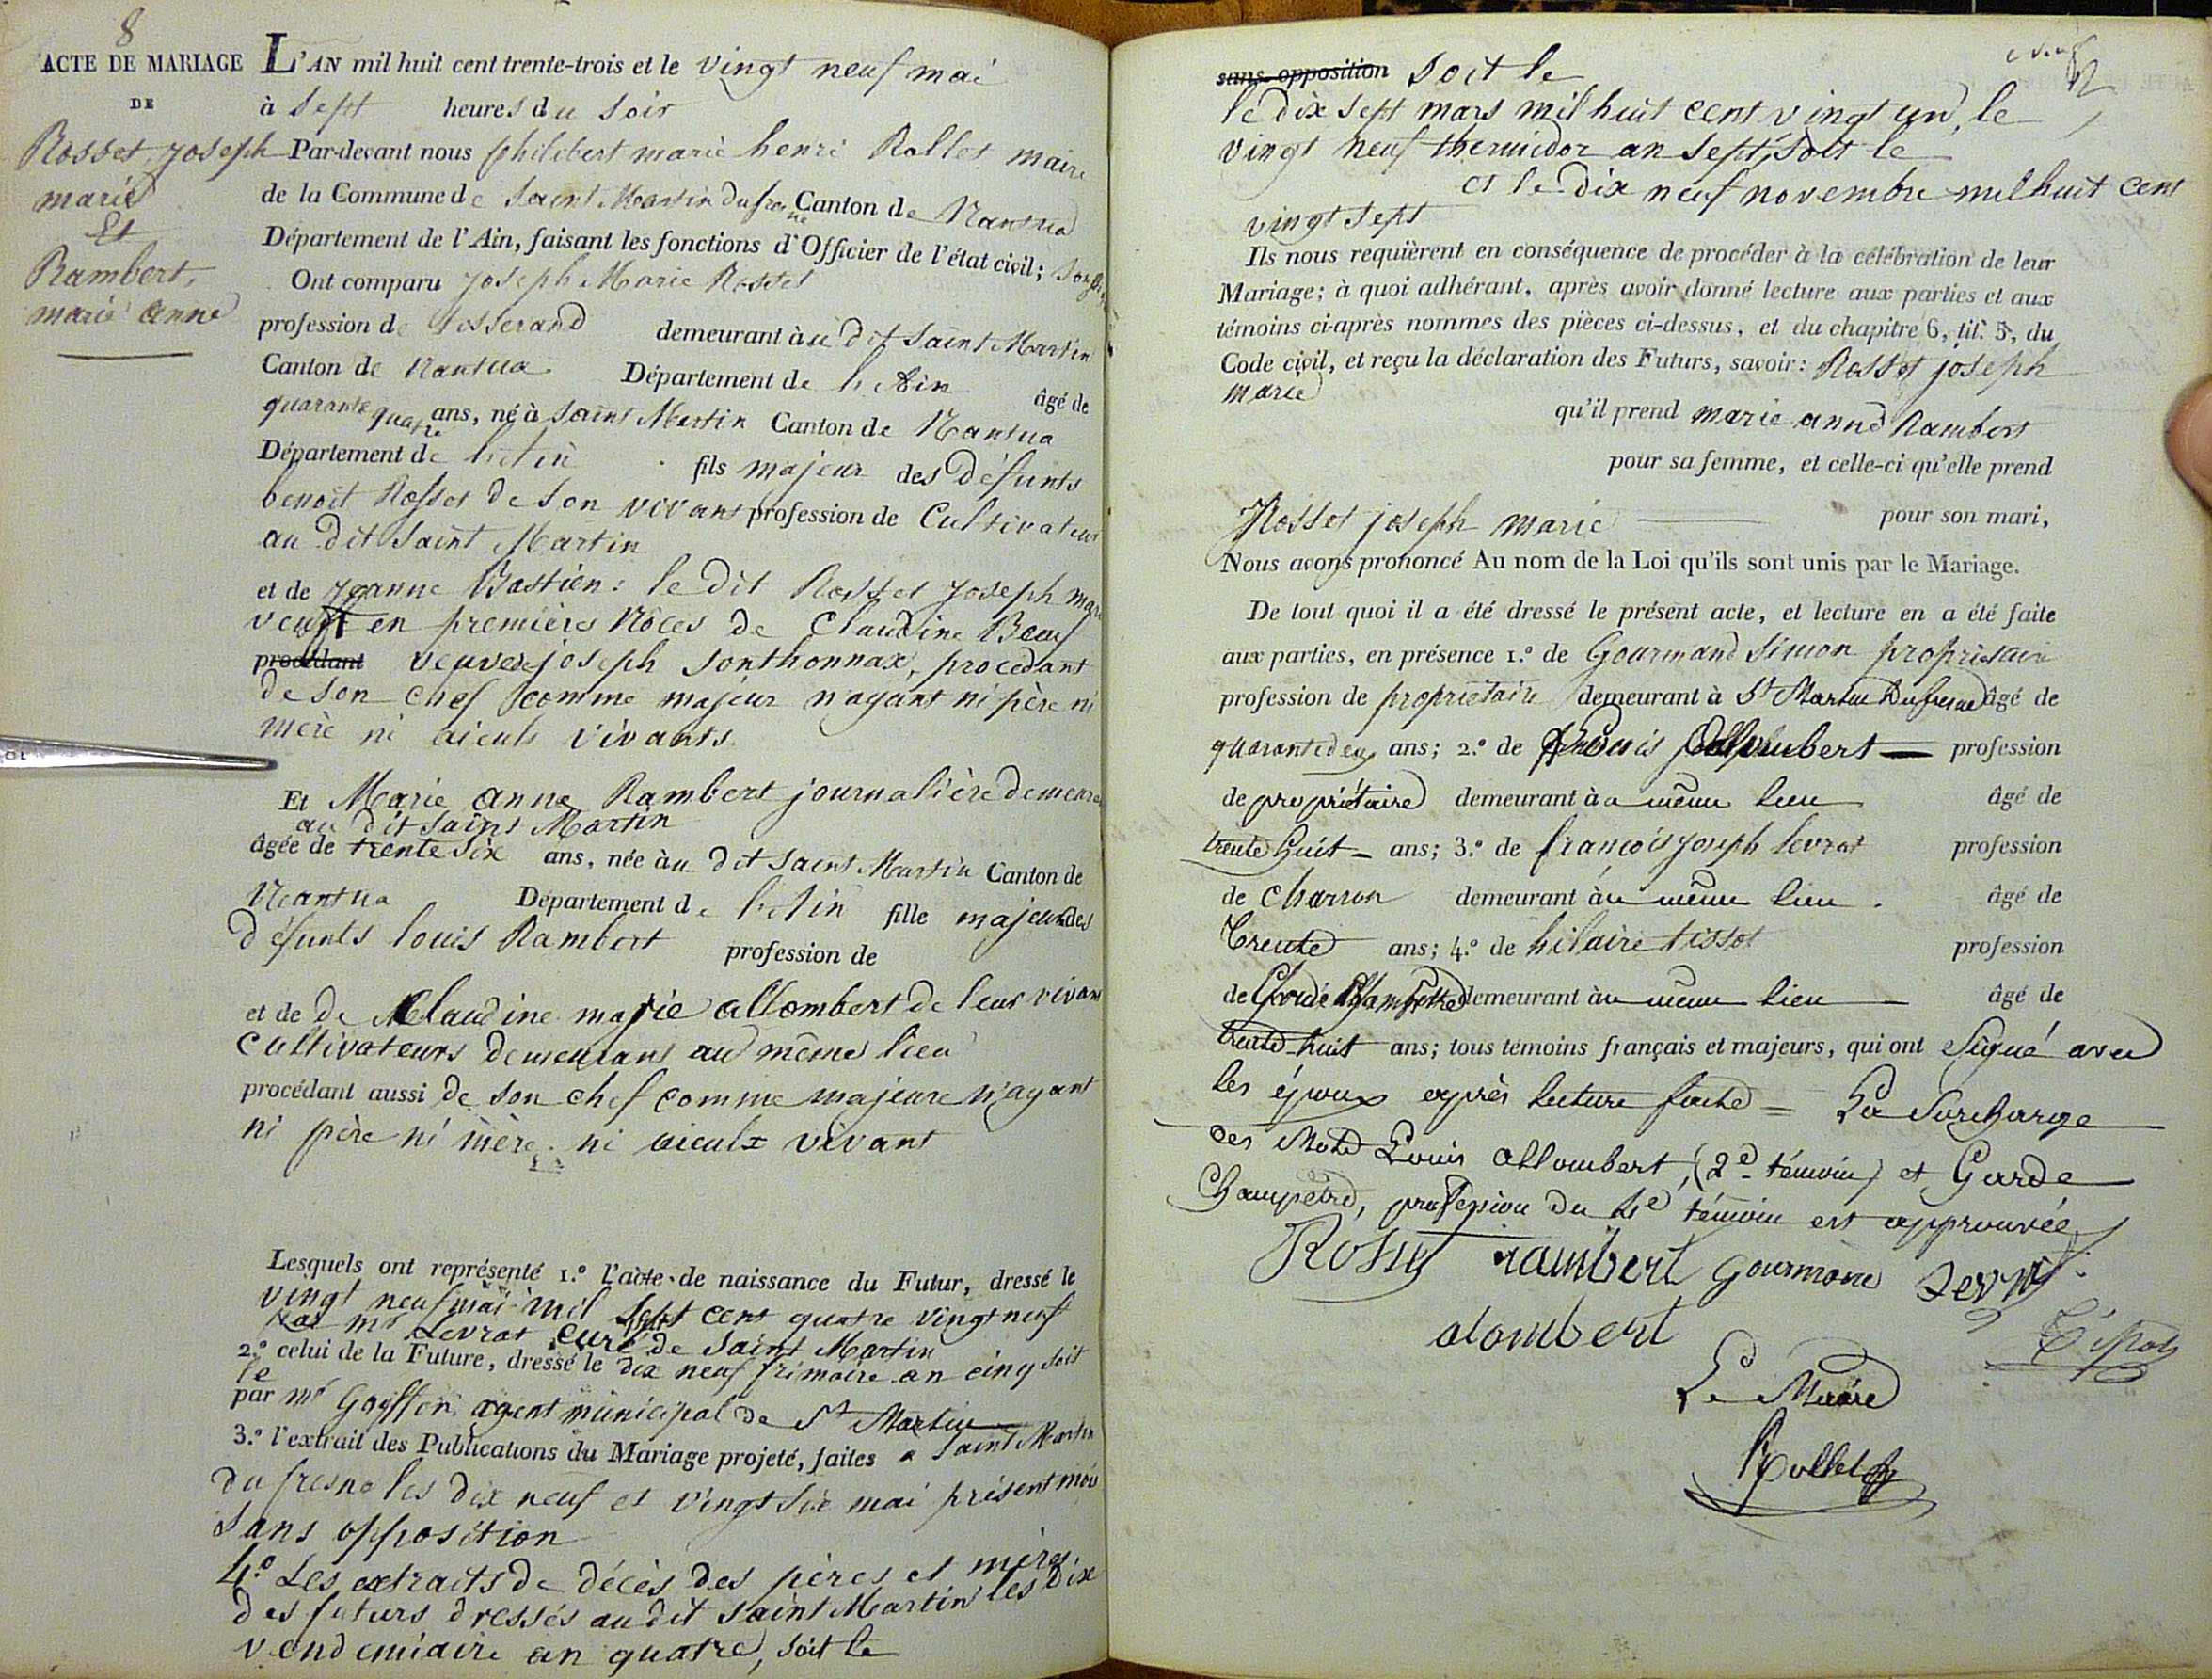 8
ACTE DE MARIAGE
DE
Rosset, joseph
marie
Et
Rambert,
marie anne
L'AN mil huit cent trente-trois et le vingt neuf mai
à sept heures du soir
Par-devant nous philibert marie henri Rollet maire
de la Commune de Saint Martin dufresne Canton de Nantua
Département de l'Ain, faisant les fonctions d'Officier de l'état civil;
Ont comparu joseph Marie Rosset
profession de tisserand demeurant à u dit Saint Martin
Canton de Nantua Département de l'Ain âgé de
quarante quatre ans, né à Saint Martin Canton de Nantua
Département de l'Ain fils majeur des défunts
benoit Rosset de son vivant profession de Cultivateur
au dit Saint Martin
et de jeanne Bastien: le dit Rosset joseph marie
veuf en premières Nôces de Claudine Beuf
procédant veuve de joseph Sonthonnax, procedant
de son chef comme majeur n'ayant ni père ni
mère ni aieuls vivants
Et Marie anne Rambert journalière demeura
au dit Saint Martin
âgée de trente six ans, née à u dit Saint Martin Canton de
Nantua Département de l'Ain fille majeure des
défunts louis Rambert profession de
et de De Claudine marie allombert de leur vivant
cultivateurs demeurant au même lieu
procédant aussi de son chef comme majeure n'ayant
ni père ni mère ni aieulx vivant
Lesquels ont représenté 1.º l'acte de naissance du Futur, dressé le
vingt neuf mai mil sept cent quatre vingt neuf
par mr Levrat curé de Saint Martin
2.º celui de la Future, dressé le dix neuf frimaire an cinq soit
le
par mr agent municipal de St Martin
3.º l'extrait des Publications du Mariage projeté, faites a Saint Martin
du fresne les dix neuf et vingt six mai présent mois
sans opposition
4.º Les extraits de décès des pères et mères
des futurs dressés au dit Saint Martin les dix
vendemiaire an quatre, soit le
sans opposition soit le
le dix sept mars mil huit cent vingt un, le
vingt neuf thermidor an sept, soit le
et le dix neuf novembre mil huit cent
vingt sept
Ils nous requièrent en conséquence de procéder à la célébration de leur
Mariage; à quoi adhérant, après avoir donné lecture aux parties et aux
témoins ci-après nommes des pièces ci-dessus, et du chapitre 6, tit. 5, du
Code civil, et reçu la déclaration des Futurs, savoir: Rosset joseph
marie
qu'il prend marie anne Rambert
pour sa femme, et celle-ci qu'elle prend
Rosset joseph marie pour son mari,
Nous avons prononcé Au nom de la Loi qu'ils sont unis par le Mariage.
De tout quoi il a été dressé le présent acte, et lecture en a été faite
aux parties, en présence 1.º de Gourmand Simon propriétaire
profession de propriétaire demeurant à St Martin Dufresne âgé de
quarante deux ans; 2.º de Louis Allombert profession
de propriétaire demeurant à u même lieu âgé de
trente huit ans; 3.º de françois joseph levrat profession
de charron demeurant à u même lieu. âgé de
Trente ans; 4.º de hilaire tissot profession
de Garde Champêtre demeurant à u même lieu âgé de
trente huit ans; tous témoins français et majeurs, qui ont signé avec
les époux après lecture faite = La Surcharge
des Mots Louis allombert, (2e témoin) et Garde
Champêtre, profession du 4e témoin est approuvée
Rosset rambert gourmand Levrat
alombert Tissot
Le Maire
Rollet